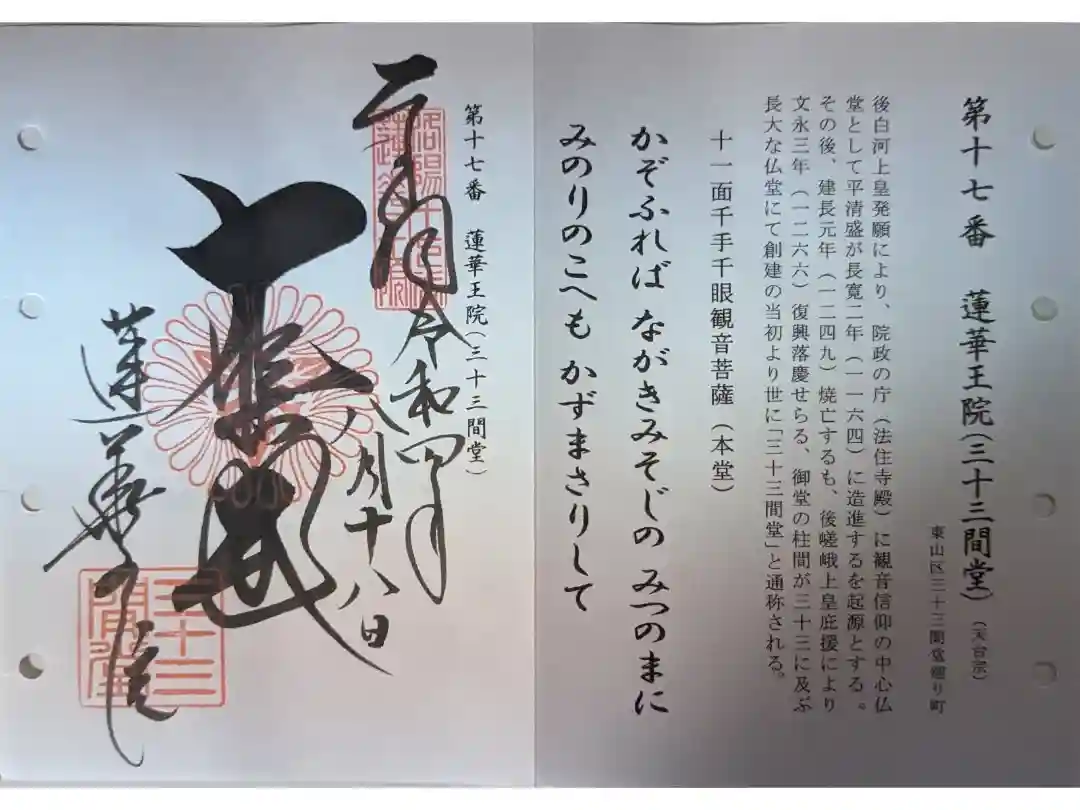 第十七番　蓮華王院(三十三間堂)（天台宗）
東山区三十三間堂廻り町
後白河上皇発願により、院政の庁（法住寺殿）に観音信仰の中心仏
堂として平清盛が長寛二年（一一六四）に造進するを起源とする。
その後、建長元年（一二四九）焼亡するも、後嵯峨上皇庇援により
文永三年（一二六六）復興落慶せらる、御堂の柱間が三十三に及ぶ
長大な仏堂にて創建の当初より世に「三十三間堂」と通称される。
十一面千手千眼観音菩薩（本堂）
かぞふれば ながきみそじの みつのまに
みのりのこへも かずまさりして
第十七番　蓮華王院(三十三間堂)
令和四年
八月十八日
大悲殿
蓮華王院
三十三
間堂